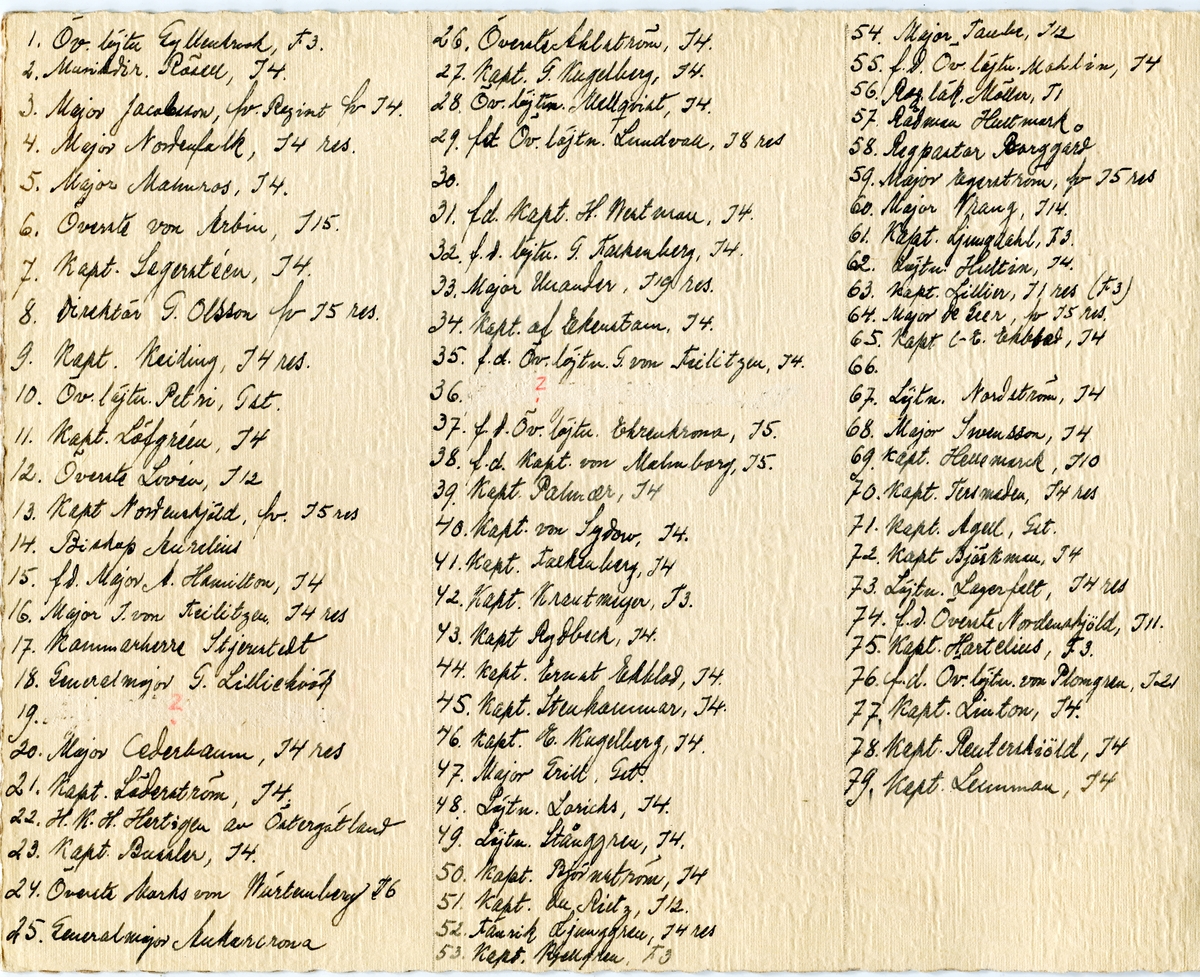 1. Öv. löjtn Gyllenkrook, F3.
2. Musikdir. Rösell, I4.
3. Major Jacobsson, fv. Regint fv I4.
4. Major Nordenfalk, I4 res.
5. Major Malmros, I4.
6. Överste von Arbin, I15.
7. Kapt. Segerstéen, I4.
8. Direktör G. Olsson fv I5 res.
9. Kapt. Keiding, I4 res.
10. Öv. löjtn. Petri, Gst.
11. Kapt. Löfgréen, I4
12. Överste Lovén, I12
13. Kapt Nordenskjöld, fv. I5 res
14. Biskop Aurelius
15. f.d. Major A. Hamilton, I4
16. Major I. von Feilitzen, I4 res
17. Kammarherre Stjernstedt
18. Generalmajor G. Lilliehöök
19. ?
20. Major Cederbaum, I4 res
21. Kapt. Söderström, I4.
22. H.K.H. Hertigen av Östergötland
23. Kapt. Bussler, I4.
24. Överste Marks von Würtemberg I6
25. Generalmajor Ankarcrona
26. Överste Ahlström, I4.
27. Kapt. G. Kugelberg, I4.
28. Öv. löjtn. Mellqvist, I4.
29. f.d. Öv. löjtn. Lundvall, I8 res
30.
31. f.d. Kapt. H. Westman, I4.
32. f.d. löjtn. G. Falkenberg, I4.
33. Major Unander, I19 res.
34. Kapt. af Ekenstam, I4.
35. f.d. Öv. löjtn. G. von Feilitzen, I4.
36. ?
37. f.d. Öv. löjtn. Ehrenkrona, I5.
38. f.d. Kapt. von Malmborg, I5.
39. Kapt. Palmær, I4
40. Kapt. von Sydow, I4.
41. Kapt. Falkenberg, I4
42. Kapt. Krautmeyer, F3.
43. Kapt Rydbeck, I4.
44. Kapt. Ernst Ekblad, I4.
45. Kapt. Stenhammar, I4.
46. Kapt. E. Kugelberg, I4.
47. Major Grill, Gst.
48. Löjtn. Lorichs, I4.
49. Löjtn. Stånggren, I4.
50. Kapt. Björnström, I4
51. Kapt. Du Rietz, I12.
52. Fänrik Ljunggren, I4 res
53. Kapt. Kjellgren, F3
54. Major Taube, I12
55. f.d. Öv. löjtn. Mohlin, I4
56. Reg läk. Möller, I1
57. Rådman Hultmark.
58. Regpastor Borggård
59. Major Egerström, fv I5 res
60. Major Wrang, I14.
61. Kapt. Ljungdahl, F3.
62. Löjtn. Hultin, I4.
63. Kapt. Lillier, I1 res (F3)
64. Major de Geer, fv I5 res.
65. Kapt C-E. Ekblad, I4
66.
67. Löjtn. Nordström, I4
68. Major Swensson, I4
69. Kapt. Hellemarck, I10
70. Kapt. Tersmeden, I4 res
71. Kapt. Agell, Gst.
72. Kapt Björkman, I4
73. Löjtn. Lagerfelt, I4 res
74. f.d. Överste Nordenskjöld, I11.
75. Kapt. Hartelius, F3.
76. f.d. Öv. löjtn. von Plomgren, I21
77. Kapt. Linton, I4.
78. Kapt. Reuterskiöld, I4
79. Kapt. Lemmon, I4